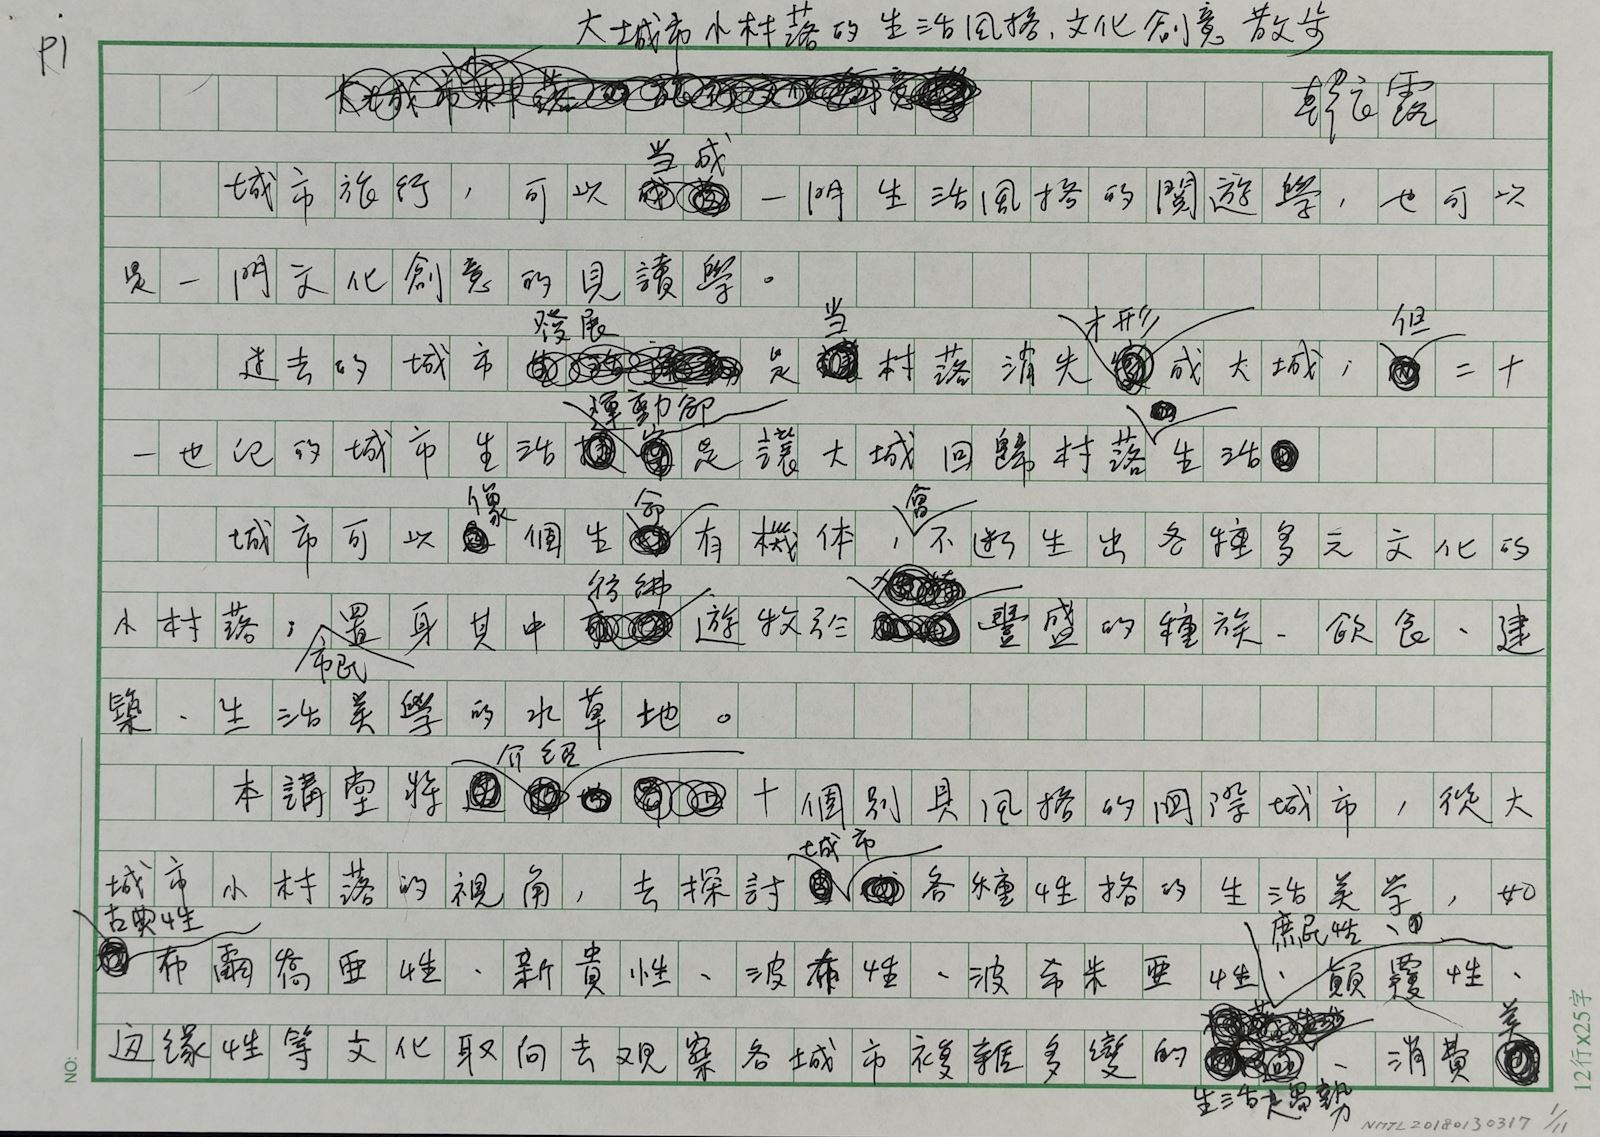 P1
大城市小村落的生活風格、文化創意散步
韓良露
城市旅行，可以当成一門生活風格的閱遊學，也可以
是一門文化創意的見讀學。
過去的城市發展是当村落消失才形成大城，但二十
一世紀的城市生活運動卻是讓大城回歸村落生活
城市可以像個生命有機体，會不斷生出各種多元文化的
小村落，市民置身其中彷彿遊牧於豐盛的種族、飲食、建
築、生活美學的水草地。
本講堂將介紹十個別具風格的國際城市，從大
城市小村落的視角，去探討城市各種性格的生活美学，如
古典性布爾喬亞性、新貴性、波布性、波希米亞性、庶民性、顛覆性、
边緣性等文化取向去观察各城市複雜多變的生活趨勢、消費美
NO:
12行×25字
NMTL20180130317 1/11